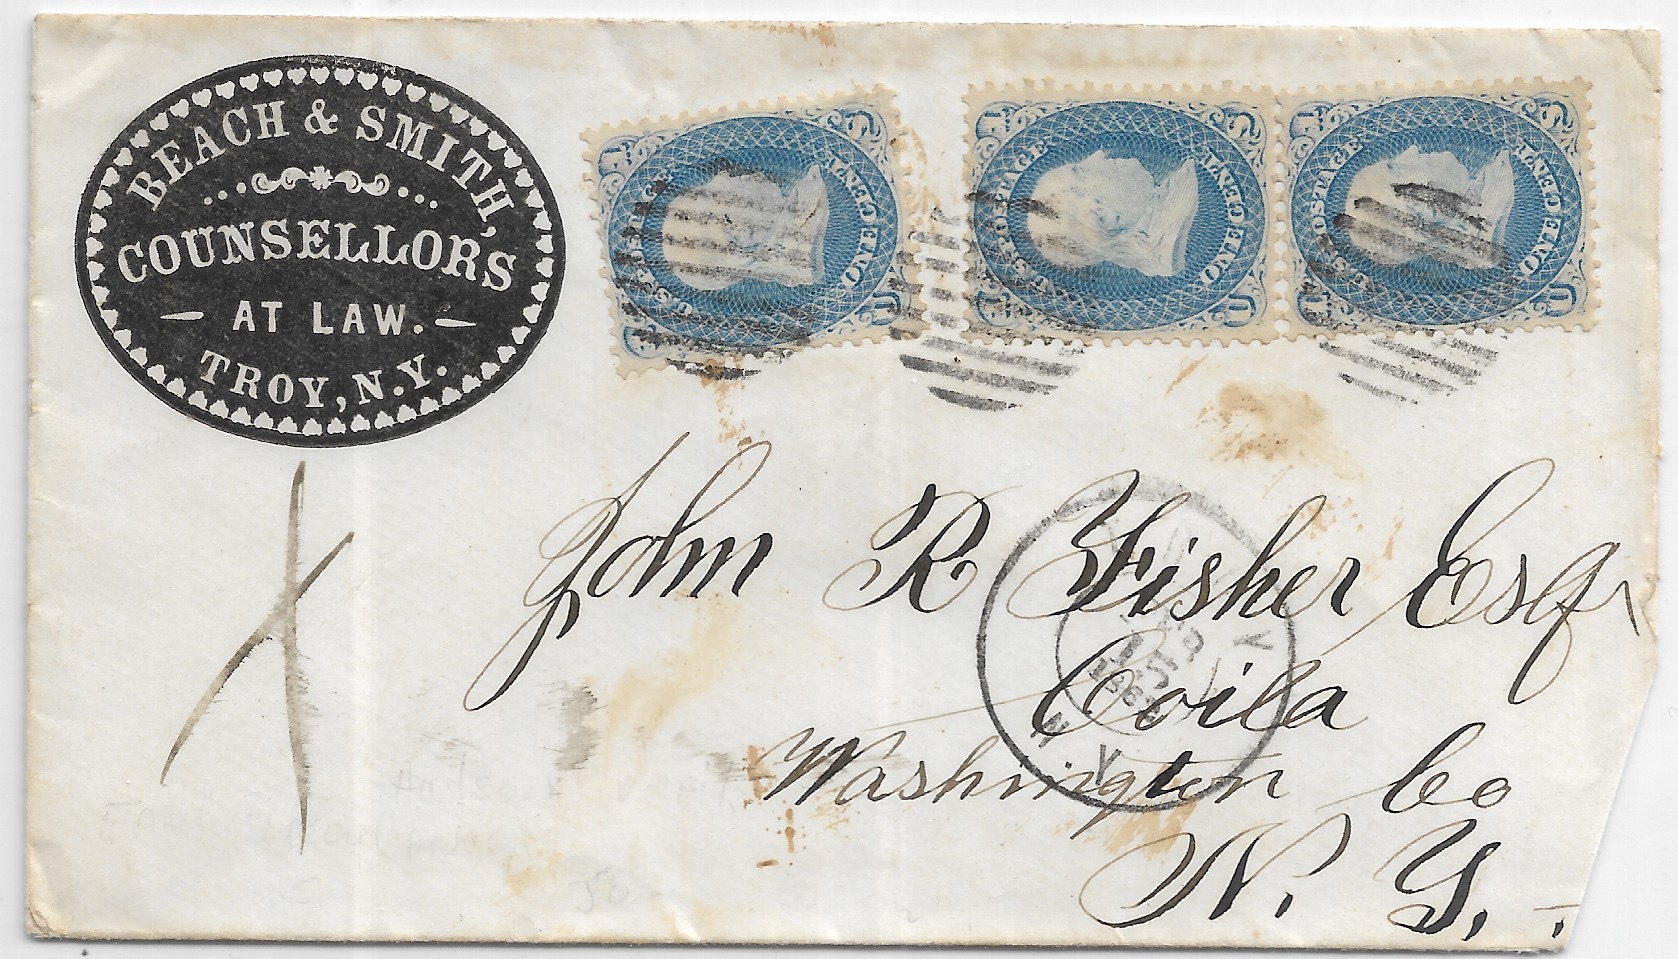 BEACH & SMITH,
COUNSELLORS
AT LAW.
TROY, N.Y.
U.S. POSTAGE
ONE CENT
U.S. POSTAGE
ONE CENT
U.S. POSTAGE
ONE CENT
John R Fisher Esqr
Coila
Washington Co
N. Y.
N Y